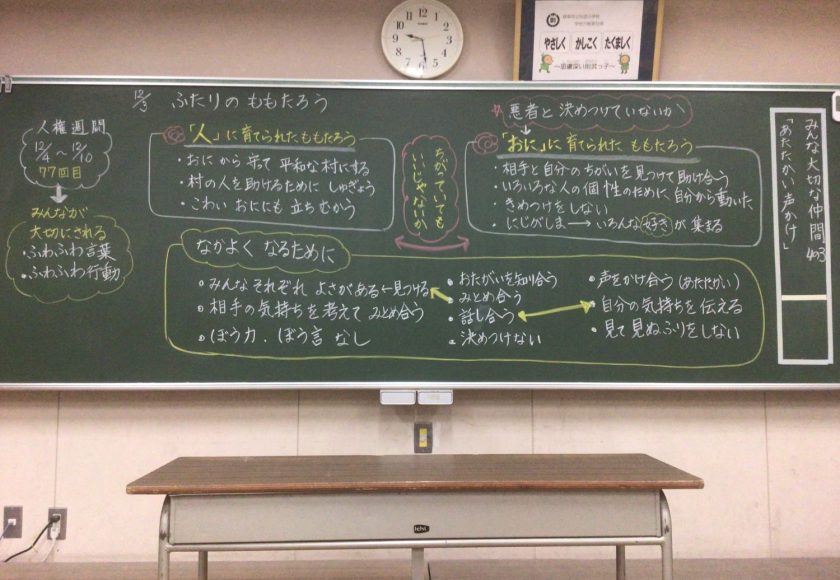 やさしく かしこく たくましく
12/3 ふたりの ももたろう
人権週間
12/4〜12/10
77回目
みんなが
大切にされる
・ふわふわ言葉
・ふわふわ行動
「人」に育てられたももたろう
・おにから守って平和な村にする
・村の人を助けるために しゅぎょう
・こわい おににも 立ちむかう
ちがっていても
いいじゃないか
悪者と決めつけていないか
「おに」に育てられた ももたろう
・相手と自分のちがいを見つけて助け合う
・いろいろな人の個性のために、自分から動いた
・きめつけをしない
・にじがしま→いろんな好きが集まる
なかよく なるために
・みんなそれぞれ よさがある←見つける
・相手の気持ちを考えて みとめ合う
・ぼう力、ぼう言 なし
・おたがいを知り合う
・みとめ合う
・話し合う
・決めつけない
・声をかけ合う(あたたかい)
・自分の気持ちを伝える
・見て見ぬふりをしない
みんな大切な仲間
「あたたかい声かけ」